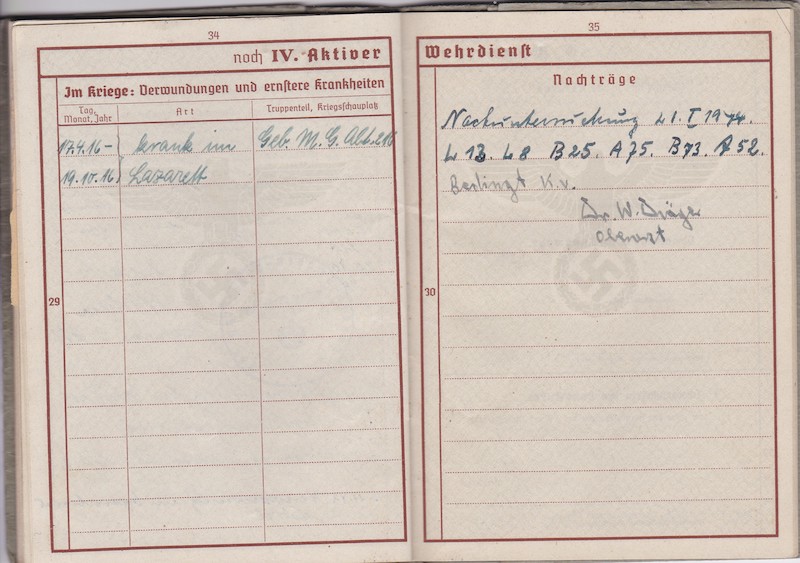 34
noch IV. Aktiver
Im Kriege: Verwundungen und ernstere Krankheiten
Tag, Monat, Jahr
Art
Truppenteil, Kriegsschauplatz
17.4.16– krank im Geb. M. G. Abt. 216
19.10.16 Lazarett
29
35
Wehrdienst
Nachträge
Nachuntersuchung 21. I 19
L 13. L 8 B 25. A 75. B 73. 52.
Bedingt K.v.
Dr. W.
Oberarzt
30